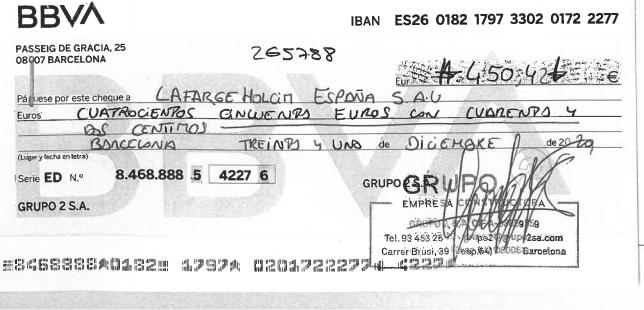 BBVA
IBAN ES26 0182 1797 3302 0172 2277
PASSEIG DE GRACIA, 25
08007 BARCELONA
265788
Eur #450,42# €
Páguese por este cheque a LAFARGEHOLCIM ESPAÑA S.A.U
Euros CUATROCIENTOS CINCUENTA EUROS CON CUARENTA Y
DOS CENTIMOS
BARCELONA TREINTA Y UNO de DICIEMBRE de 2020
(Lugar y fecha en letra)
Serie ED N.º 8.468.888 5 4227 6
GRUPO 2 S.A.
GRUPO 2 S.A.
GRUPO
EMPRESA CONSTRUCTORA
GRUPO 2, S.A.
Tel. 93 453 25
Carrer Brusi, 39 Barcelona
8468888 0182 1797 0201722277 4227